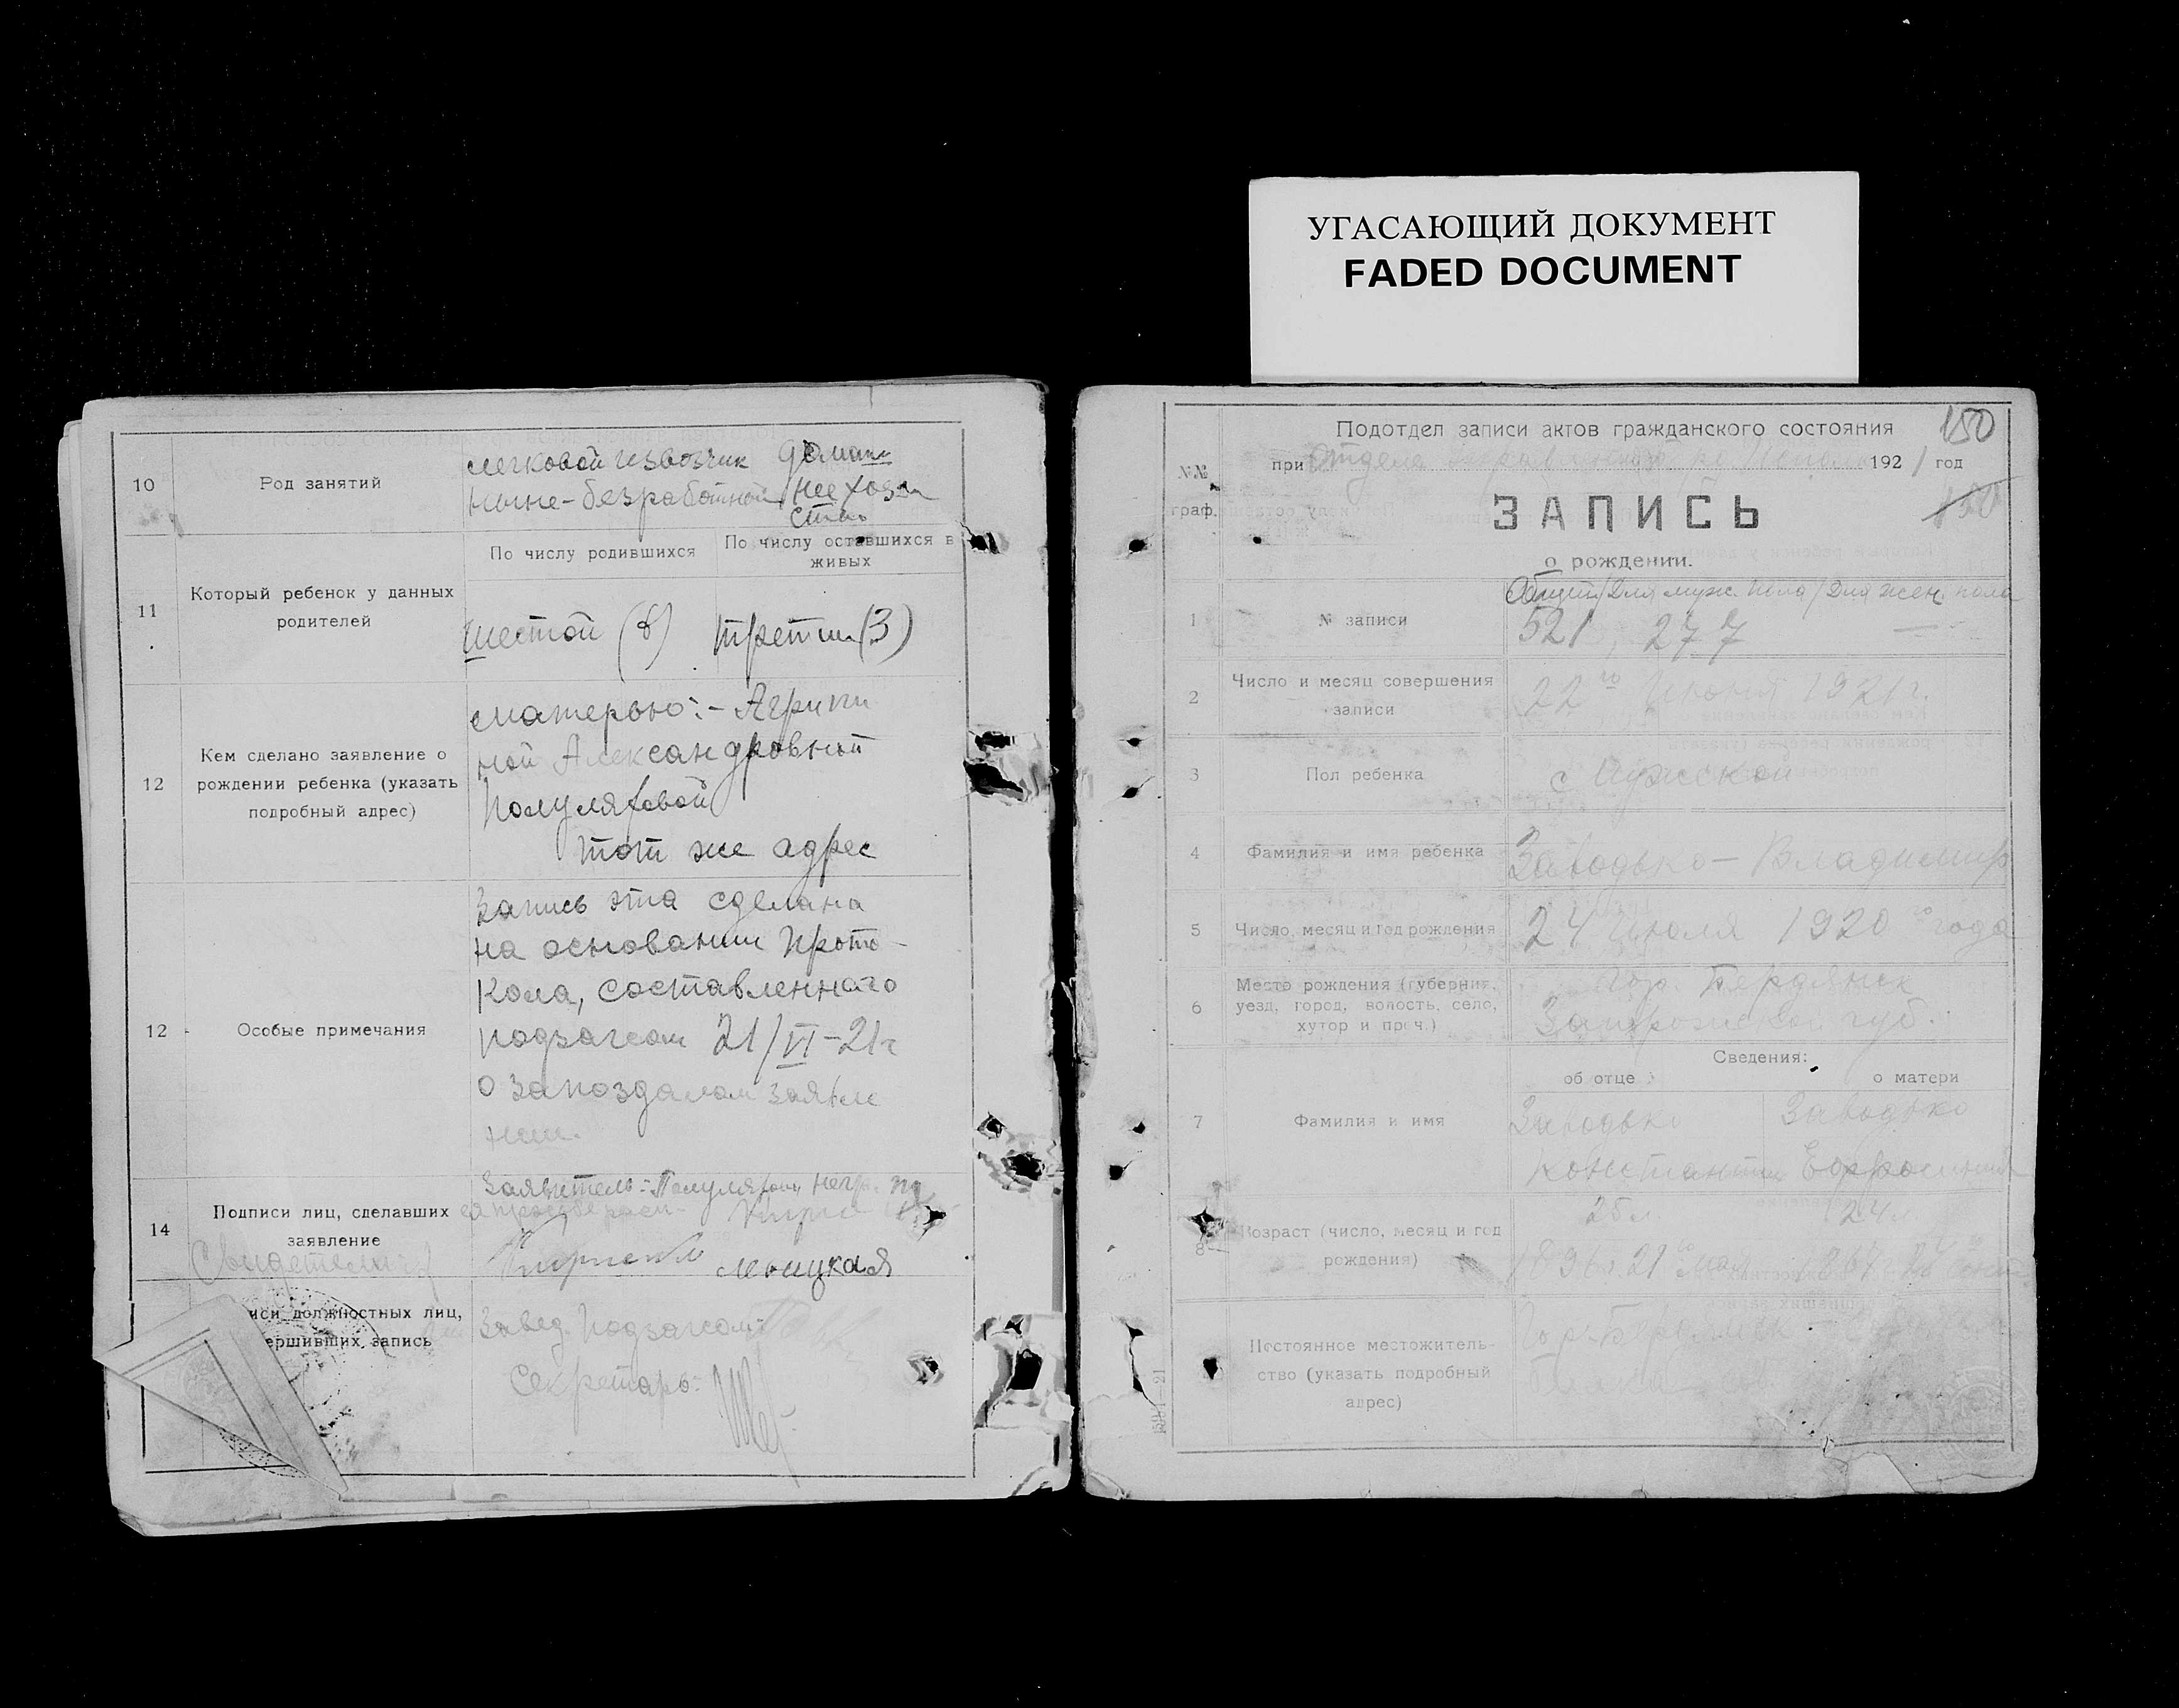 УГАСАЮЩИЙ ДОКУМЕНТ
FADED DOCUMENT
10
Род занятий
легковой извозчик
ныне-безработной
домаш
нее хозяй
ство
11
Который ребенок у данных
родителей
По числу родившихся
По числу оставшихся в
живых
шестой (6)
третий (3)
12
Кем сделано заявление о
рождении ребенка (указать
подробный адрес)
матерью:- Агрипи
ной Александровной
Полуляховой
тот же адрес
12
Особые примечания
Запись эта сделана
на основании прото-
кола, составленного
подзагсом 21/VI-21г
о запоздалом заявле
нии.
14
Подписи лиц, сделавших
заявление
Свидетели
Заявитель:- Полуляхова негр.
ея просьбе расп-
Мощцкая
иси должностных лиц,
ершивших запись
Завед. Подзагсом:
Секретарь:
150
Подотдел записи актов гражданского состояния
№№
граф.
при Отделе 1921 год
ЗАПИСЬ
150
о рождении.
1
№ записи
Общий/Для муж. пола/Для жен. пола
521, 277 —
2
Число и месяц совершения
записи
22го Июня 1921г.
3
Пол ребенка
Мужской
4
Фамилия и имя ребенка
Заводько - Владимир
5
Число, месяц и год рождения
24 Июля 1920го года
6
Место рождения (губерния,
уезд, город, волость, село,
хутор и проч.)
гор. Бердянск
Запорожской губ.
Сведения:
об отце
о матери
7
Фамилия и имя
Заводько
Константин
Заводько
Ефросиния
8
Возраст (число, месяц и год
рождения)
25 л
24
1896г. 21 Мая
Постоянное местожитель-
ство (указать подробный
адрес)
Гор. Бердянск